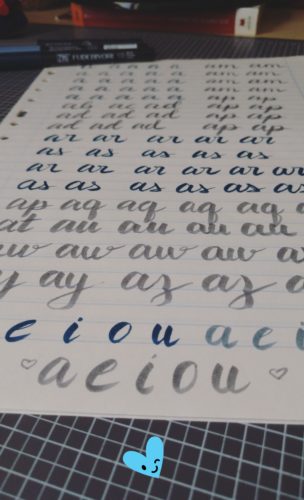 FUDENOSUKE
a a a a a am am
a a a a a am am
a a a a a am am
a a a a a ap ap
ab ac ad ap ap
ad ad ad ap ap
ad ad ad ap ap
ar ar ar ar ar
as as as as as
ar ar ar ar ar
as as as as as as
ap aq aq aq aq
at au au au au
aw aw aw aw
ay az az
e i o u a e i
a e i o u